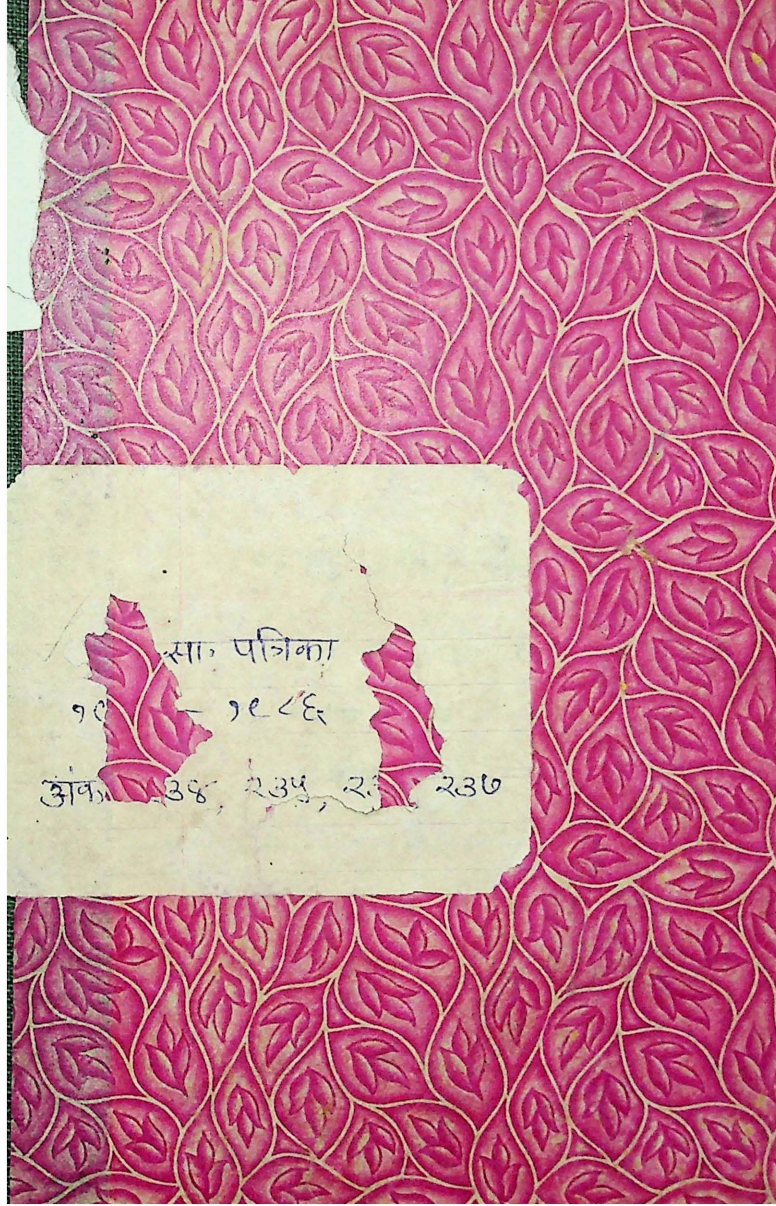 सा. पत्रिका
१९ – १९८६
अंक २३४, २३५, २३ २३७